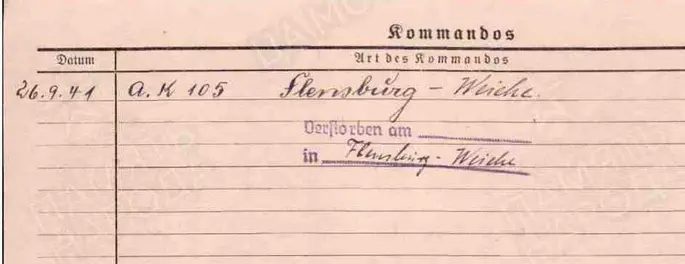 Kommandos
Datum Art des Kommandos
26.9.41 A.K 105 Flensburg - Weiche.
Verstorben am
in Flensburg - Weiche
ПАМЯТЬ
НАРОДА